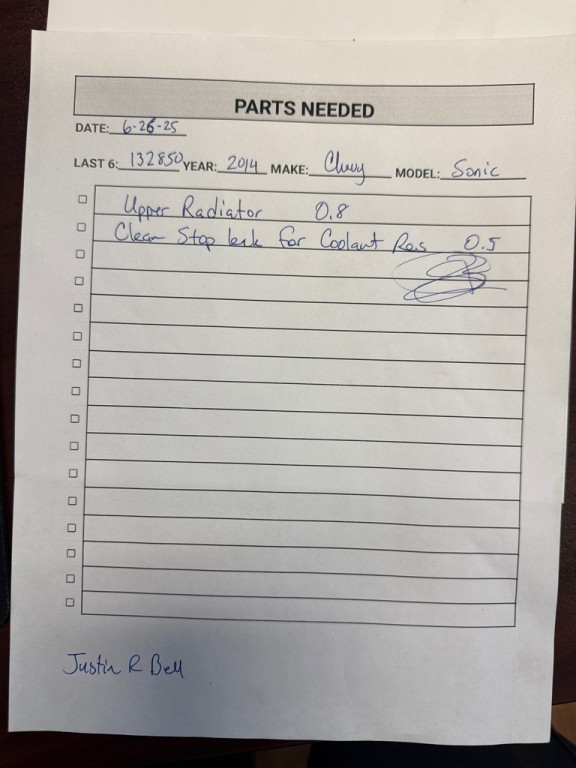 PARTS NEEDED
DATE: 6-26-25
LAST 6: 132850 YEAR: 2014 MAKE: Chevy MODEL: Sonic
Upper Radiator 0.8
Clean Stop leak for Coolant Res 0.5
Justin R Bell